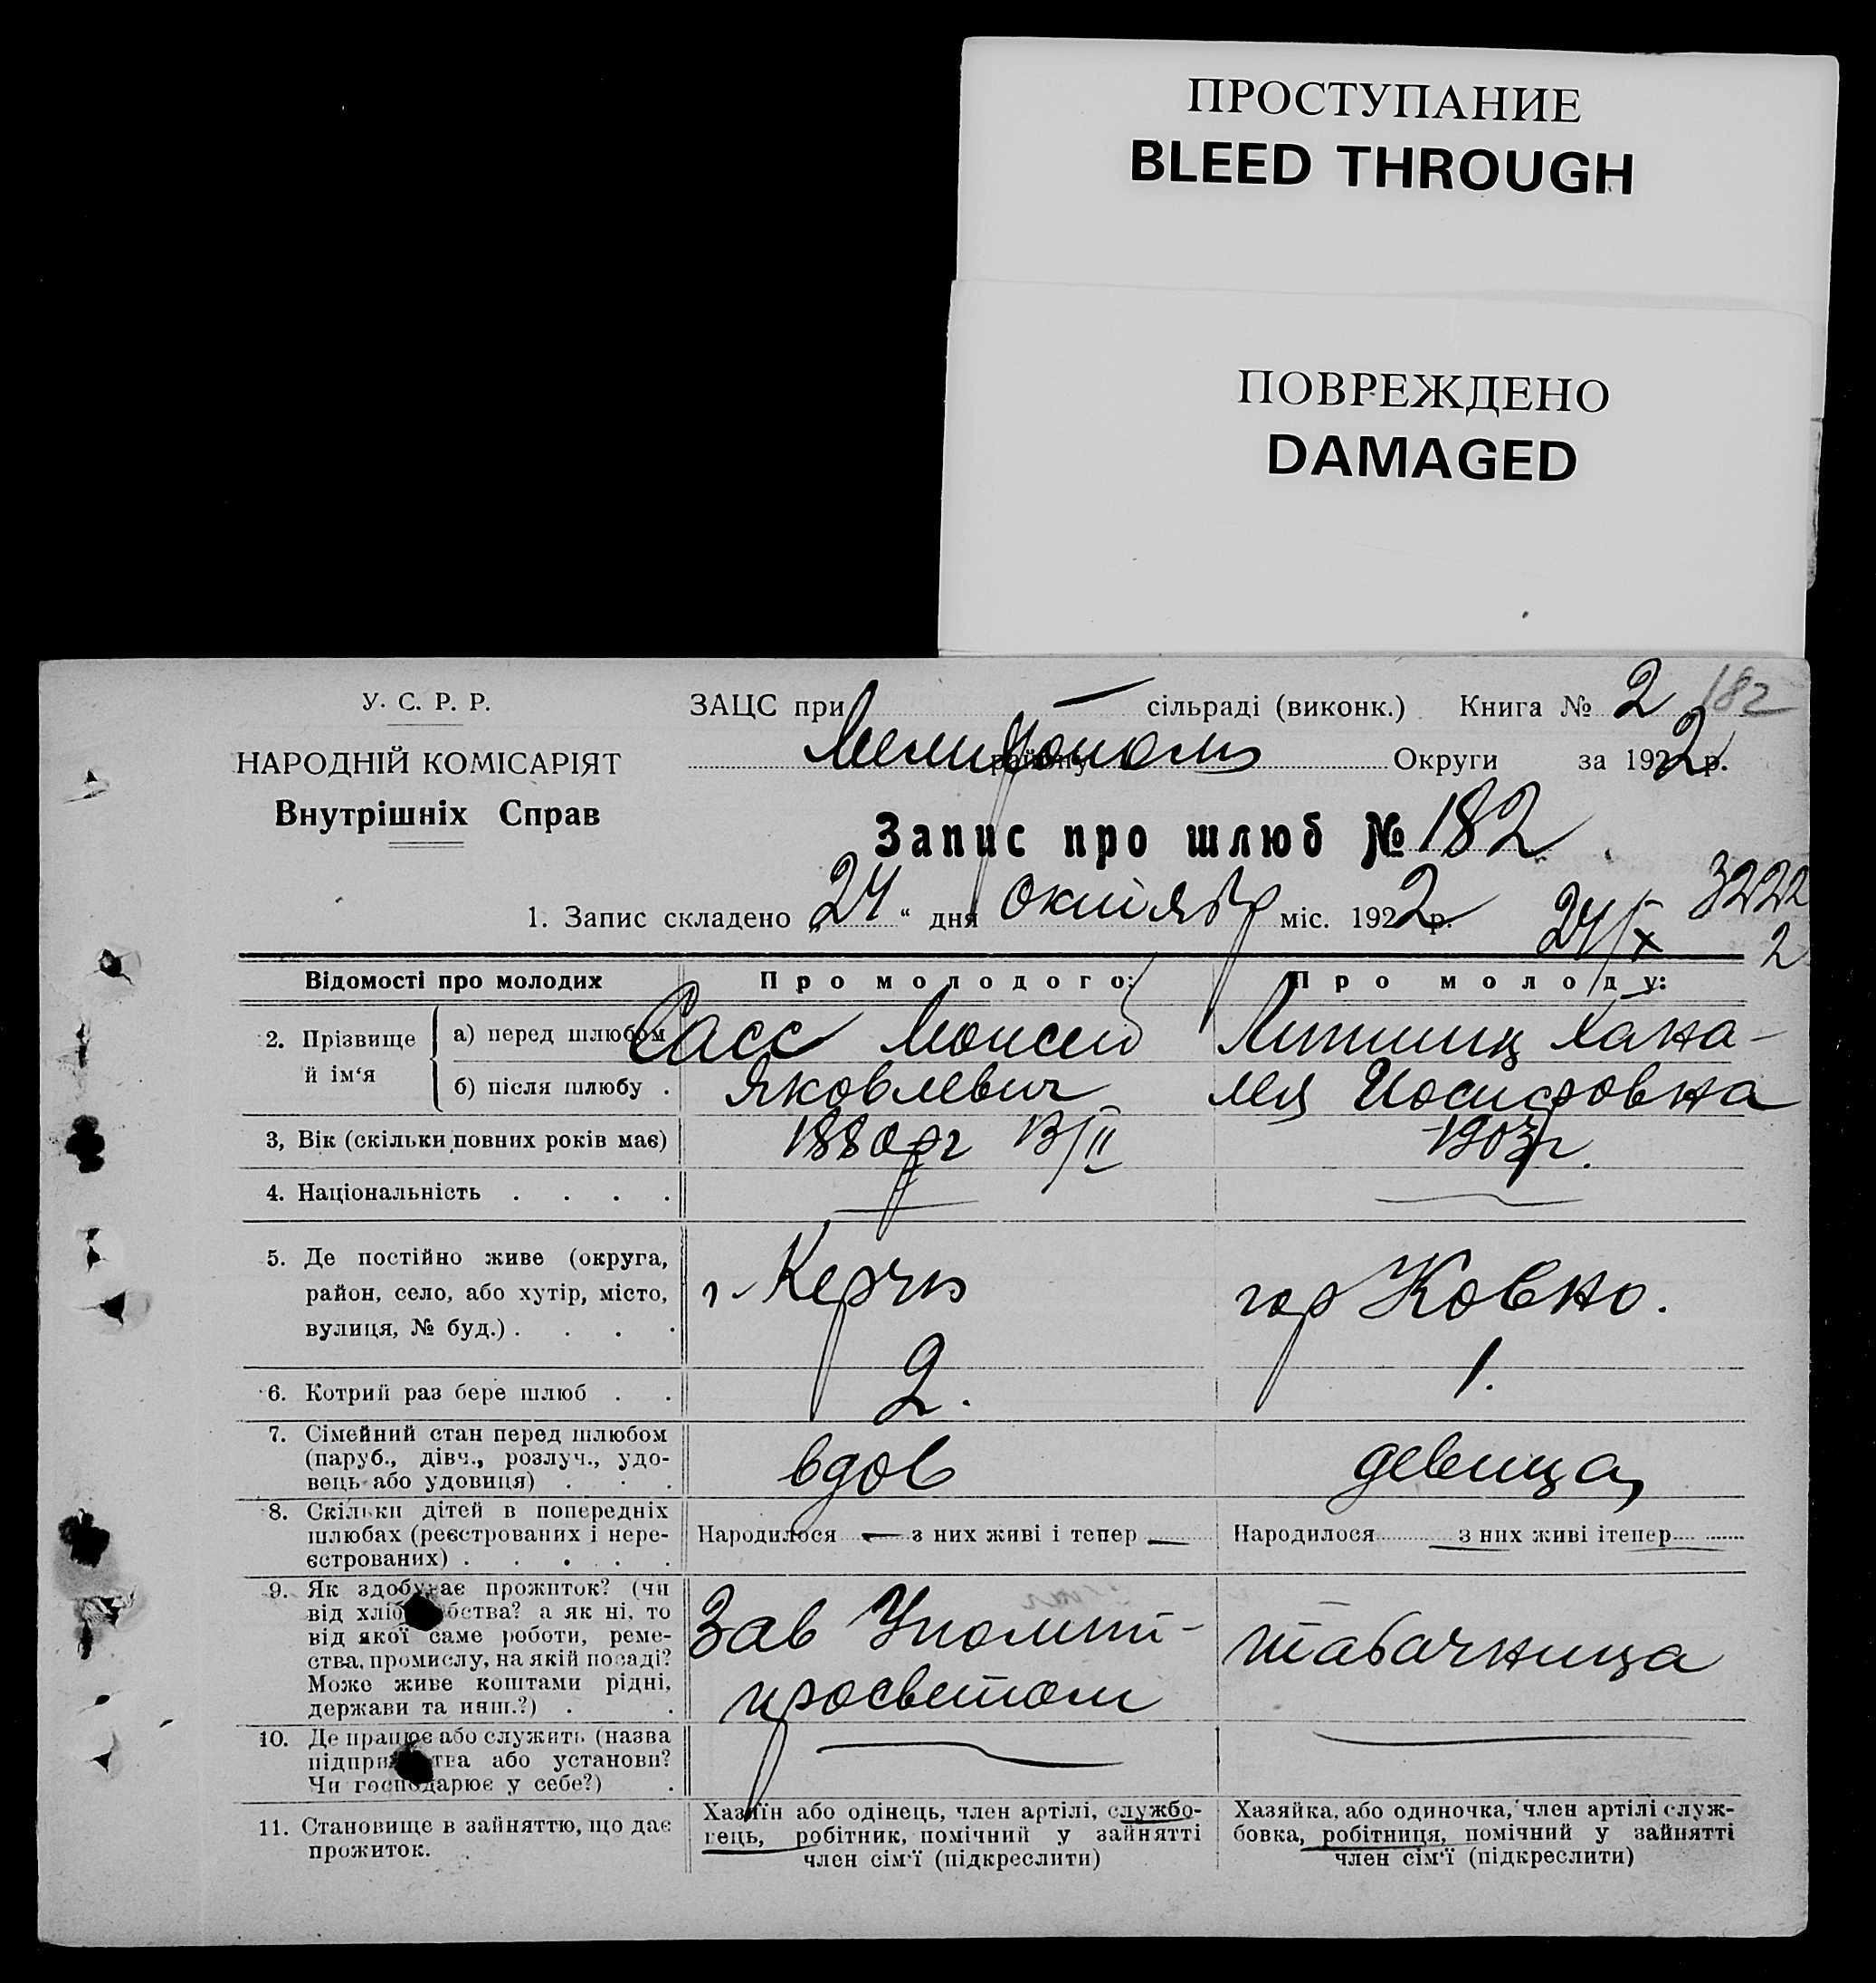 ПРОСТУПАНИЕ
BLEED THROUGH
ПОВРЕЖДЕНО
DAMAGED
У. С. Р. Р.
НАРОДНІЙ КОМІСАРІЯТ
Внутрішніх Справ
ЗАЦС при — сільраді (виконк.) Книга № 2 182
Мелитополь району Округи за 1922 р.
Запис про шлюб № 182
1. Запис складено „24“ дня октября міс. 1922 р. 24/X 3222
2
Відомості про молодих Про молодого: Про молоду:
2. Прізвище й ім‘я а) перед шлюбом Сасс Моисей Липшиц Хана-
б) після шлюбу . Яковлевич Лея Иосифовна
3, Вік (скільки повних років має) 1880 г 13/II 1903 г.
4. Національність . . . . — —
5. Де постійно живе (округа,
район, село, або хутір, місто,
вулиця, № буд.) . . . .
г. Керчь гор Ковно.
6. Котрий раз бере шлюб . . 2. 1.
7. Сімейний стан перед шлюбом
(паруб., дівч., розлуч., удо-
вець або удовиця) . . .
вдов девица
8. Скільки дітей в попередніх
шлюбах (реєстрованих і нере-
єстрованих) . . . . .
Народилося — з них живі і тепер — Народилося з них живі ітепер
9. Як здобуває прожиток? (чи
від хліб бства? а як ні, то
від якої саме роботи, реме-
ства, промислу, на якій посаді?
Може живе коштами рідні,
держави та инш.?) . .
Зав Уполит-
просветом
табачница
10. Де працює або служить (назва
підпри тва або установи?
Чи господарює у себе?) .
11. Становище в зайняттю, що дає
прожиток.
Хазяїн або одінець, член артілі, службо-
вець, робітник, помічний у зайнятті
член сім‘ї (підкреслити)
Хазяйка, або одиночка, член артілі служ-
бовка, робітниця, помічний у зайнятті
член сім‘ї (підкреслити)